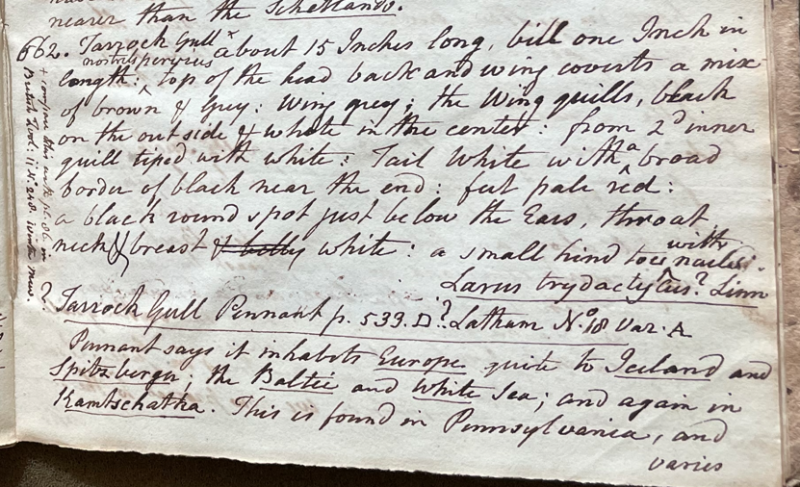 nearer than the Schetlands.
662. Tarrock Gull x about 15 Inches long, bill one Inch in
nostrils pervius
length: top of the head back and wing coverts a mix
of brown & Grey: Wing grey; the Wing quills, black
on the outside & whole in the center: from 2d inner
quill tiped with white: Tail White with a broad
border of black near the end: feet pale red:
a black round spot just below the Ears, throat
neck & breast & belly white: a small hind toe with
nails.
Larus trydactylus? Linn
? Tarrock Gull Pennant p. 533. D? Latham No. 18 Var. A
Pennant says it inhabits Europe quite to Iceland and
Spitzbergen, the Baltic and White Sea; and again in
Kamtschatka. This is found in Pennsylvania, and
varies
+ compare this with pl. 86 in
British Zool: winter